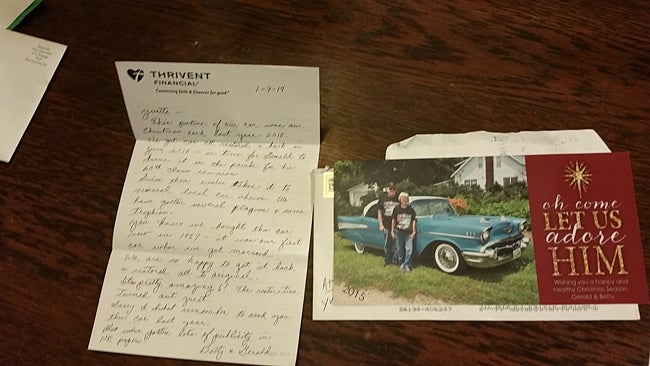 THRIVENT
FINANCIAL®
Connecting faith & finances for good.®
1-9-19
Yvette –
This picture of our car was our
Christmas card last year – 2018
We got car all restored & back in
June 2018 – in time for Gerald to
drive it in the parade for his
60th class reunion.
Since then we've taken it to
several local car shows. We
have gotten several plaques & some
trophies.
You know we bought this car
new in 1957 – it was our first
car when we got married.
We are so happy to get it back
& restored all to original.
It's pretty amazing & the restoration
turned out great.
Sorry I didn't remember to send you
this car last year.
Also we've gotten lots of publicity in
the papers!
Betty & Gerald
oh come
LET US
adore
HIM
Wishing you a happy and
healthy Christmas Season,
Gerald & Betty
2015
56134-406247